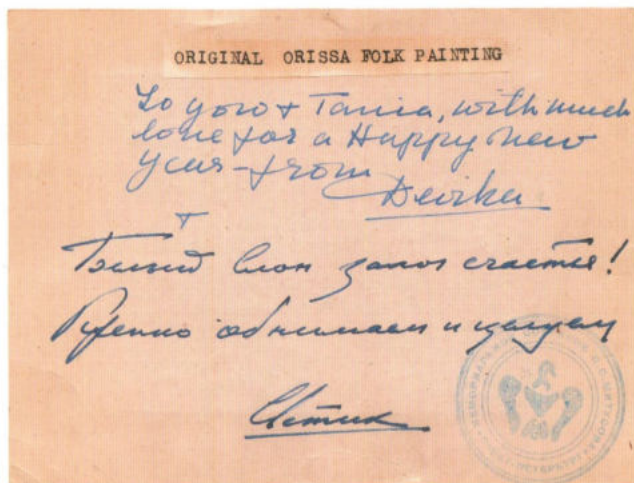 ORIGINAL ORISSA FOLK PAINTING
To + Tania, with much
love for a Happy New
Year - from
Devika
+
Белый слон залог счастья!
Крепко обнимаем и целуем
Светик